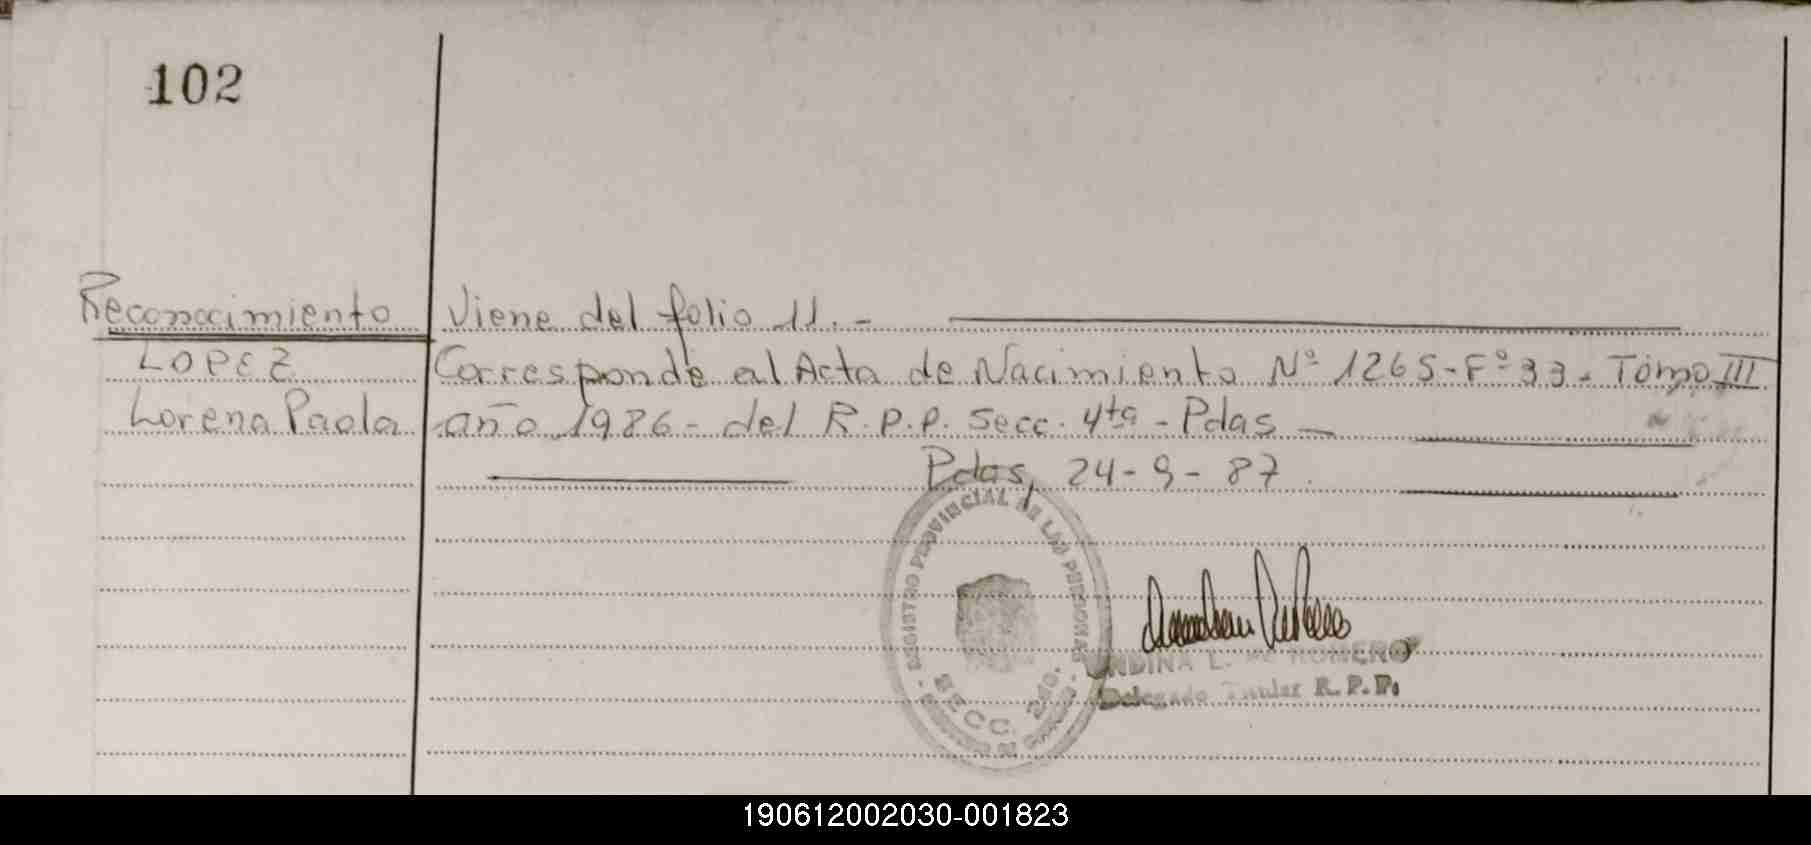 102
Reconocimiento
LOPEZ
Lorena Paola
Viene del folio 11.-
Corresponde al Acta de Nacimiento Nº 1265-Fº 33- Tomo III
año 1986- del R.P.P. Secc. 4ta - Pdas -
Pdas, 24-9-87.
REGISTRO PROVINCIAL DE LAS PERSONAS
SECC. 2da.
L. de ROMERO
Delegado Titular R.P.P.
190612002030-001823